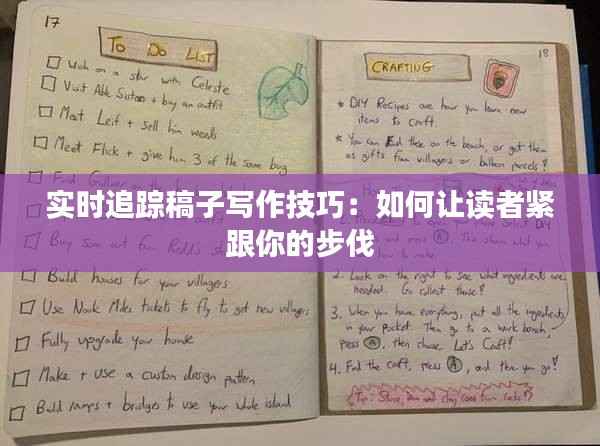 17
TO DO LIST
Wish on a star with Celeste
Visit Able Sisters + buy an outfit
Meet Leif + sell him weeds
Meet Flick + give him 3 of the same bug
实时追踪稿子写作技巧：如何让读者紧
跟你的步伐
Build houses for your villagers
Use Nook Miles tickets to fly to get new villagers
Fully upgrade your house
Make + use a custom design pattern
Build ramps + bridges to use your whole island
18
CRAFTING
* DIY Recipes are how you learn new
items to craft.
* You can find these on the beach, or get them
as gifts from villagers or balloon parcels!
2. Look on the right to see what ingredients are
needed. Go collect those!
3. When you have everything, put all the ingredients
in your pocket. Then go to a work bench,
press A, then choose Let's Craft!
4. Find the craft, press A, and there you go!